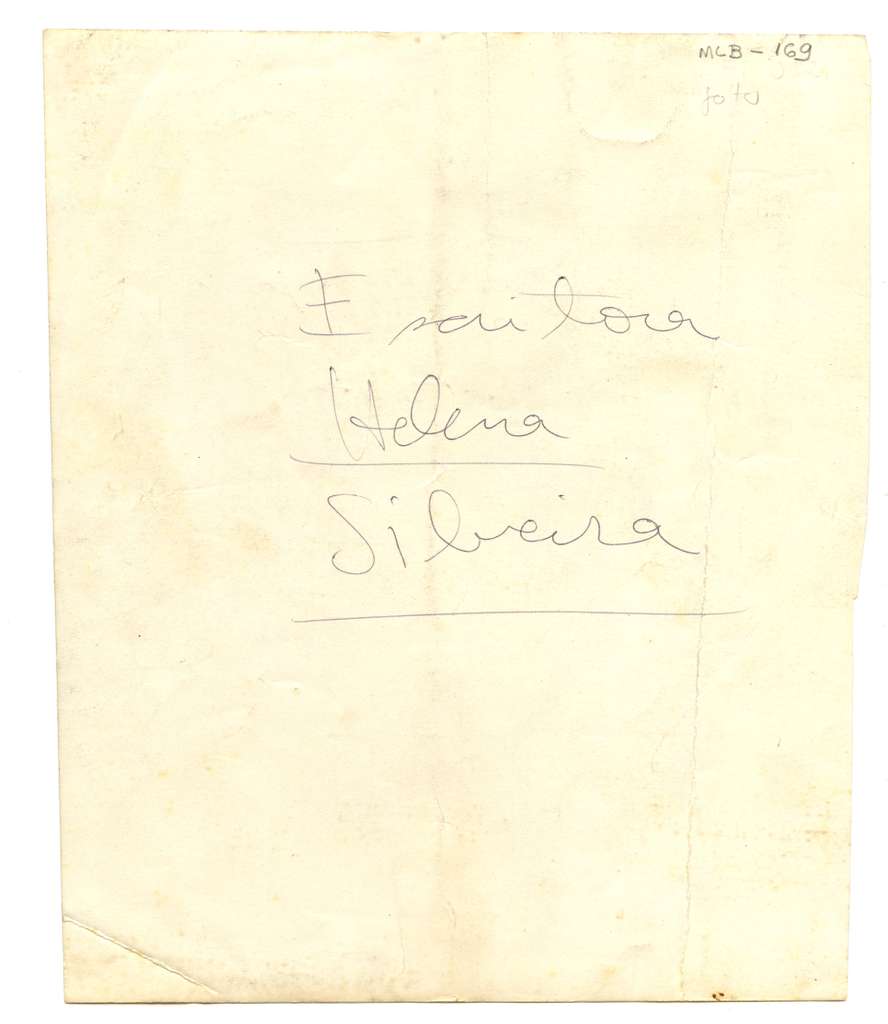 MLB - 169
foto
Escritora
Helena
Silveira